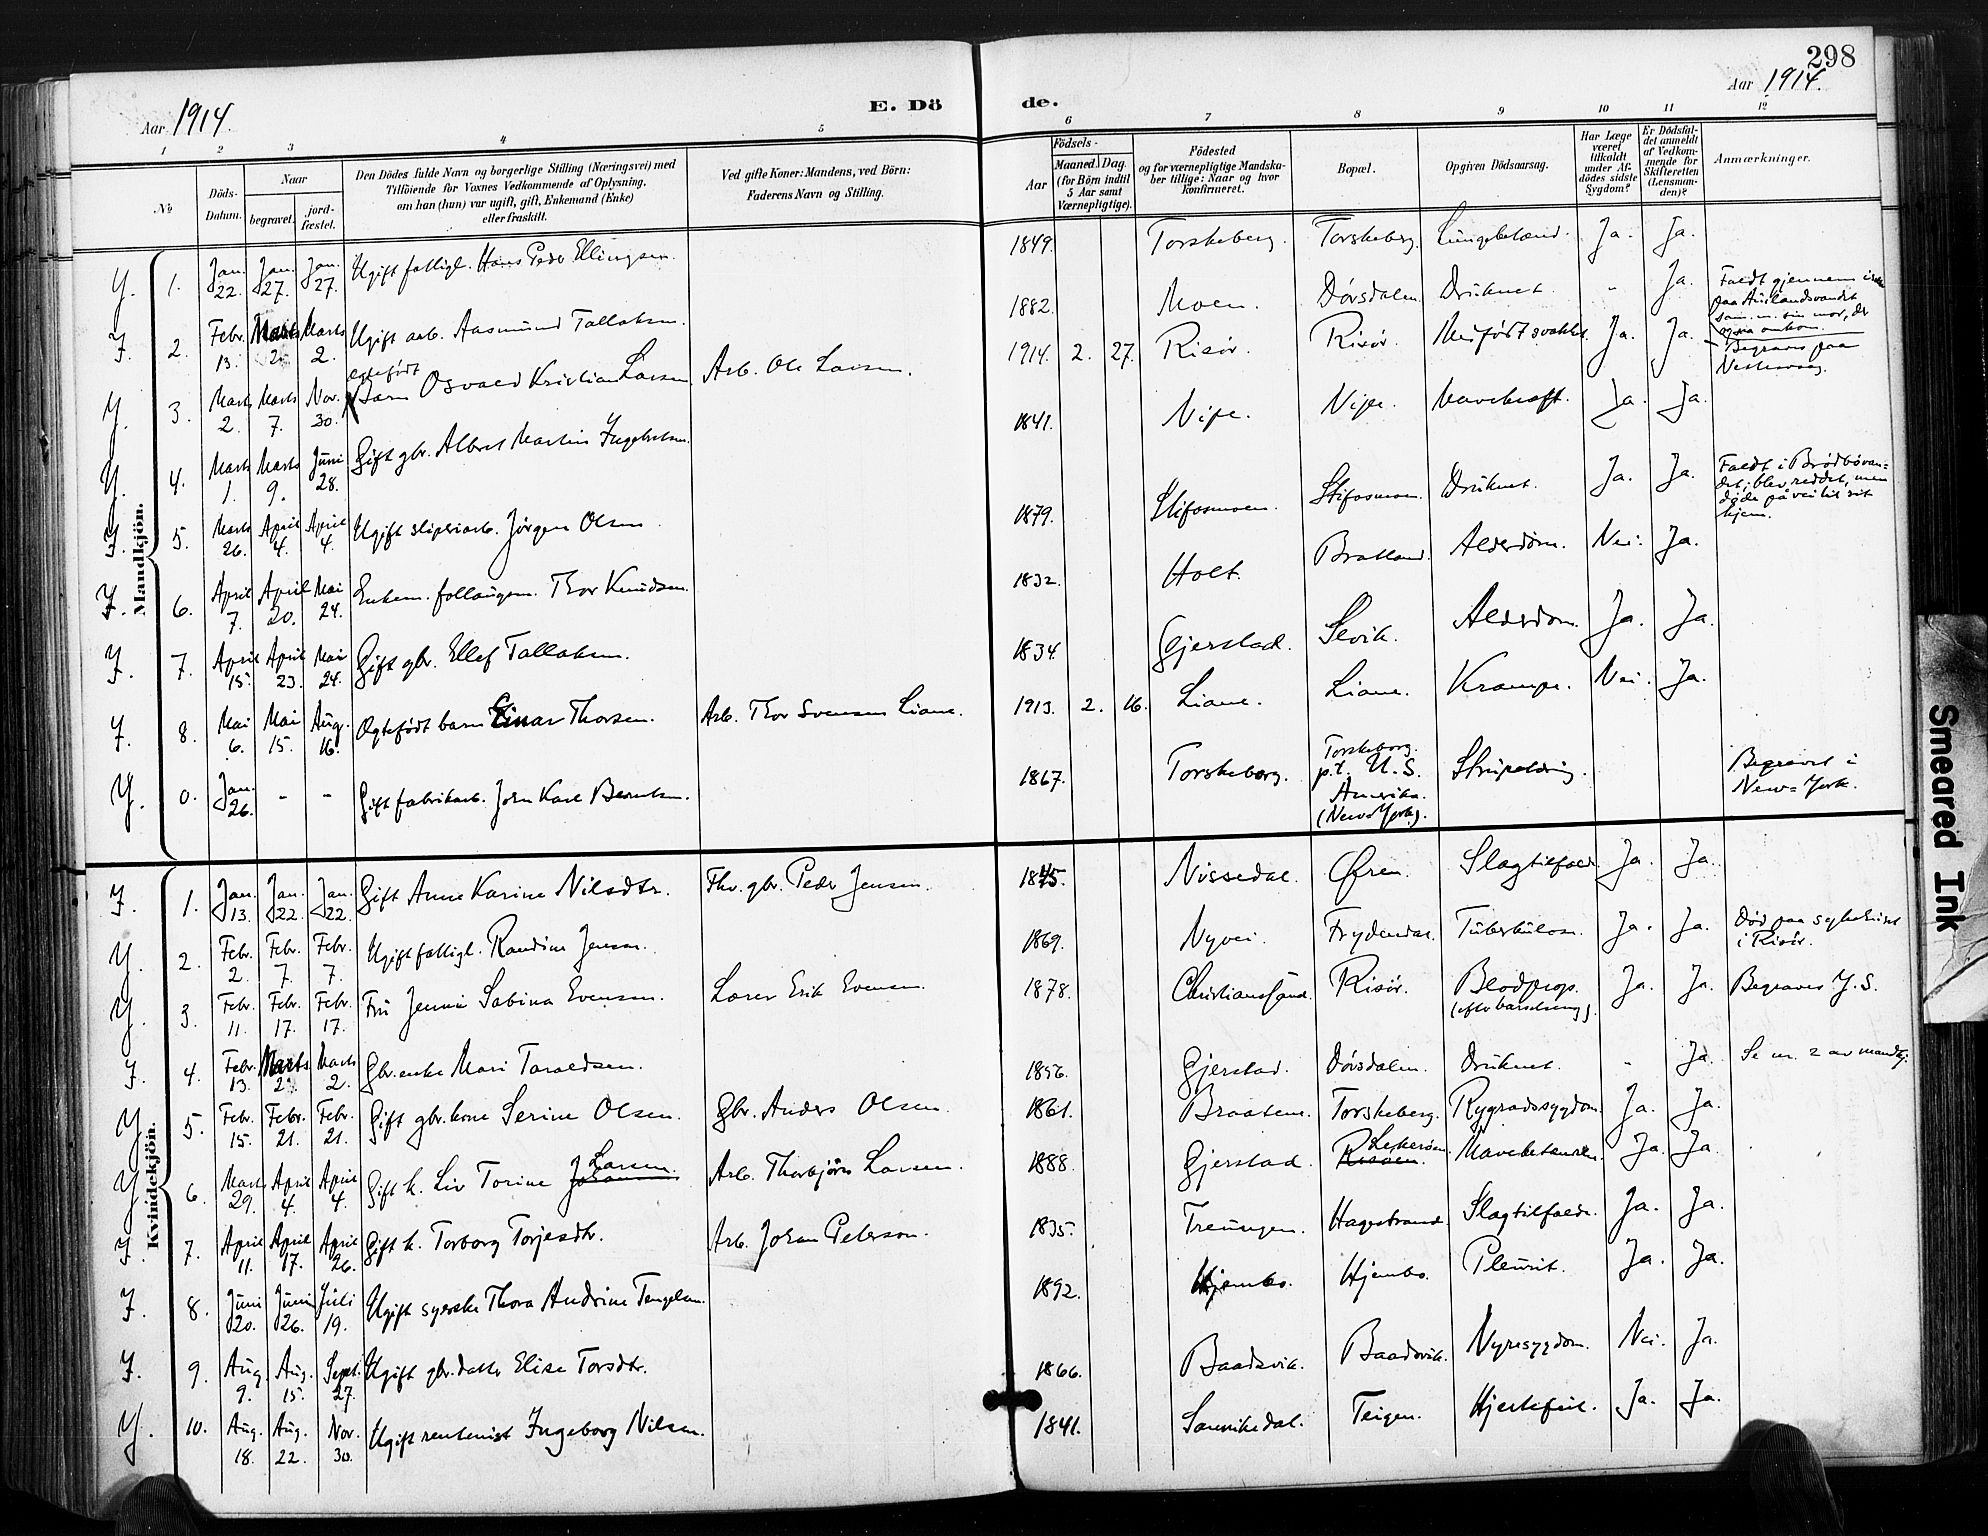 298
Aar 1914.
E. Dö
de.
Aar 1914.
1 2 3 4 5 6 7 8 9 10 11 12
№
Döds-Datum.
Naar
begravet.
jord-fæstet.
Den Dödes fulde Navn og borgerlige Stilling (Næringsvei) med
Tilföiende for Voxnes Vedkommende af Oplysning,
om han (hun) var ugift, gift, Enkemand (Enke)
eller fraskilt.
Ved gifte Koner: Mandens, ved Börn:
Faderens Navn og Stilling.
Födsels-
Aar
Maaned. Dag.
(for Börn indtil
5 Aar samt
Værnepligtige).
Födested
og for værnepligtige Mandska-
ber tillige: Naar og hvor
konfirmeret.
Bopæl.
Opgiven Dödsaarsag.
Har Læge
været
tilkaldt
under Af-
dödes sidste
Sygdom?
Er Dödsfal-
det anmeldt
af Vedkom-
mende for
Skifteretten
(Lensman-
den)?
Anmærkninger.
Mandkjön.
Y. 1. Jan. 22. Jan. 27. Jan. 27. Ugift fattigl. Hans Peder Ellingsen. 1849. Torskeberg. Torskeberg. Lungebetænd. Ja. Ja.
I. 2. Febr. 13. Marts 2. Marts 2. Ugift arb. Aasmund Tallaksen. 1882. Moen. Dörsdalen. Druknet. - Ja. Faldt gjennem isen
paa Auslandsvandet
sam. m. sin mor, der
ogsaa omkom.
Y. 3. Marts 2. Marts 7. Nov. 30. Egtefödt Barn Osvald Kristian Larsen. Arb. Ole Larsen. 1914. 2. 27. Risör. Risör. Medfödt svakhet. Ja. Ja. Begraves paa
Y. 4. Marts 1. Marts 9. Juni 28. Gift gbr. Albret Martin Ingebretsen. 1841. Nipe. Nipe. Mavekræft. Ja. Ja.
I. 5. Marts 26. April 4. April 4. Ugift sliperiarb. Jörgen Olsen. 1879. Stifosmoen. Stifosmoen. Druknet. Ja. Ja. Faldt i Brödbövan=
det; blev reddet, men
döde på vei til sit
hjem.
I. 6. April 7. April 20. Mai 24. Enkem. follaugsm. Thor Knudsen. 1832. Holt. Brattland. Alderdom. Nei. Ja.
I. 7. April 15. April 23. Mai 24. Gift gbr. Ellef Tallaksen. 1834. Gjerstad. Sevik. Alderdom. Ja. Ja.
I. 8. Mai 6. Mai 15. Aug. 16. Egtefödt barn Einar Thorsen. Arb. Thor Svensen Liane. 1913. 2. 16. Liane. Liane. Krampe. Nei. Ja.
Y. 0. Jan. 26. - - Gift fabrikarb. John Karl Berntsen. 1867. Torskeberg. Torskeberg.
p.t. U.S.
Amerika.
(New York). Strupelidning. Begravet i
New=York.
Kvindekjön.
I. 1. Jan. 13. Jan. 22. Jan. 22. Gift Anne Karine Nilsdtr. Fhv. gbr. Peder Jensen. 1845. Nissedal. Öfren. Slagtilfæld. Ja. Ja.
Y. 2. Febr. 2. Febr. 7. Febr. 7. Ugift fattigl. Randine Jensen. 1869. Nyvei. Frydendal. Tuberkulose. Ja. Ja. Död paa sykehuset
i Risör.
Y. 3. Febr. 11. Febr. 17. Febr. 17. Fru Jenni Sabina Evensen. Lærer Erik Evensen. 1878. Christianssand. Risör. Blodprop.
(efter barselseng). Ja. Ja. Begraves Y.S.
I. 4. Febr. 13. Marts 2. Marts 2. Gbr.enke Mari Taraldsen. 1856. Gjerstad. Dörsdalen. Druknet. - Ja. Se nr. 2 av mandkj.
Y. 5. Febr. 15. Febr. 21. Febr. 21. Gift gbr.kone Serine Olsen. Gbr. Anders Olsen. 1861. Braaten. Torskeberg. Rygradssygdom. Ja. Ja.
Y. 6. Marts 29. April 4. April 4. Gift k. Liv Torine Larsen. Arb. Thorbjörn Larsen. 1888. Gjerstad. Mavebetændelse. Ja. Ja.
I. 7. April 11. April 17. April 26. Gift k. Torborg Torjesdtr. Arb. Johan Peterson. 1835. Treungen. Hagestrand. Slagtilfælde. Ja. Ja.
I. 8. Juni 20. Juni 26. Juli 19. Ugift syerske Thora Andrine Tengelsen. 1892. Hjembo. Hjembo. Pleurit. Ja. Ja.
I. 9. Aug. 9. Aug. 15. Sept. 27. Ugift gbr.datter Elise Torsdtr. 1866. Baadsvik. Baadsvik. Nyresygdom. Nei. Ja.
Y. 10. Aug. 18. Aug. 22. Nov. 30. Ugift rentenist Ingeborg Nilsen. 1841. Sannikedal. Teigen. Hjertefeil. Ja. Ja.
Smeared Ink